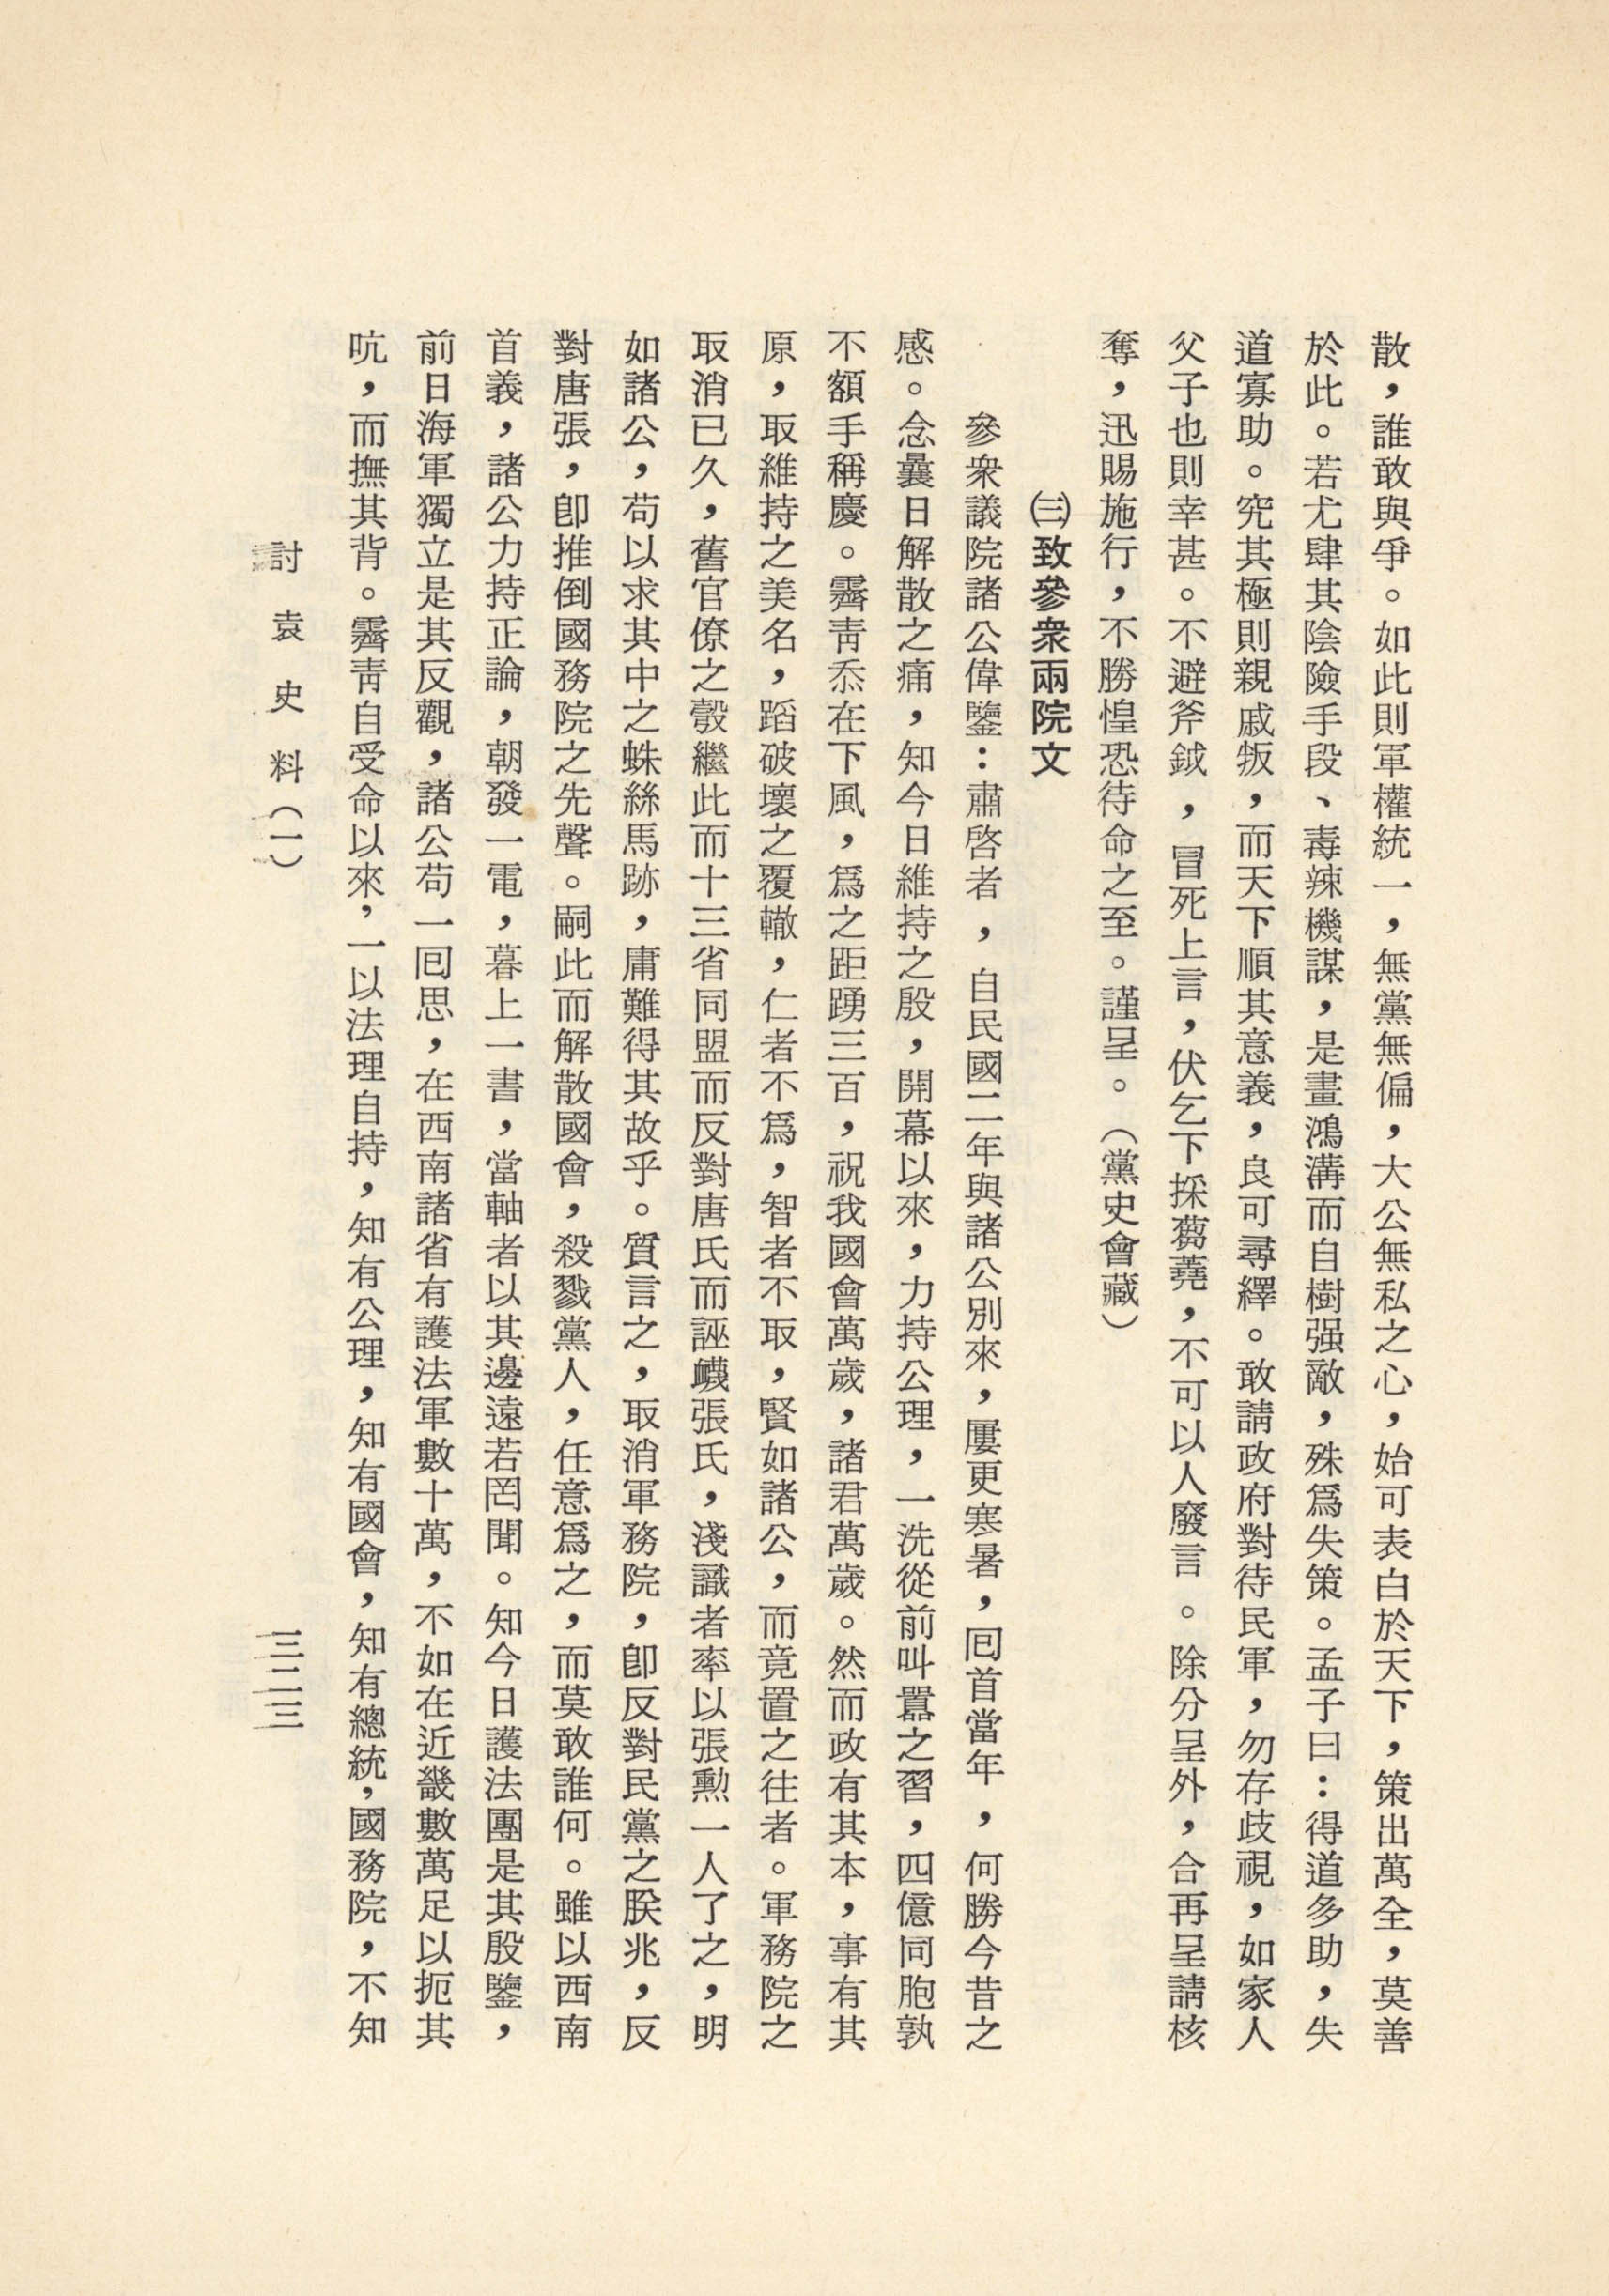 散，誰敢與爭。如此則軍權統一，無黨無偏，大公無私之心，始可表白於天下，策出萬全，莫善
於此。若尤肆其陰險手段、毒辣機謀，是畫鴻溝而自樹强敵，殊爲失策。孟子曰：得道多助，失
道寡助。究其極則親戚叛，而天下順其意義，良可尋繹。敢請政府對待民軍，勿存歧視，如家人
父子也則幸甚。不避斧鉞，冒死上言，伏乞下採蒭蕘，不可以人廢言。除分呈外，合再呈請核
奪，迅賜施行，不勝惶恐待命之至。謹呈。（黨史會藏）
㈢致參衆兩院文
參衆議院諸公偉鑒：肅啓者，自民國二年與諸公別來，屢更寒暑，囘首當年，何勝今昔之
感。念曩日解散之痛，知今日維持之殷，開幕以來，力持公理，一洗從前叫囂之習，四億同胞孰
不額手稱慶。霽靑忝在下風，爲之距踴三百，祝我國會萬歲，諸君萬歲。然而政有其本，事有其
原，取維持之美名，蹈破壞之覆轍，仁者不爲，智者不取，賢如諸公，而竟置之往者。軍務院之
取消已久，舊官僚之彀繼此而十三省同盟而反對唐氏而誣衊張氏，淺識者率以張勳一人了之，明
如諸公，苟以求其中之蛛絲馬跡，庸難得其故乎。質言之，取消軍務院，卽反對民黨之朕兆，反
對唐張，卽推倒國務院之先聲。嗣此而解散國會，殺戮黨人，任意爲之，而莫敢誰何。雖以西南
首義，諸公力持正論，朝發一電，暮上一書，當軸者以其邊遠若罔聞。知今日護法團是其殷鑒，
前日海軍獨立是其反觀，諸公苟一囘思，在西南諸省有護法軍數十萬，不如在近畿數萬足以扼其
吭，而撫其背。霽靑自受命以來，一以法理自持，知有公理，知有國會，知有總統，國務院，不知
討袁史料（一）
三二三